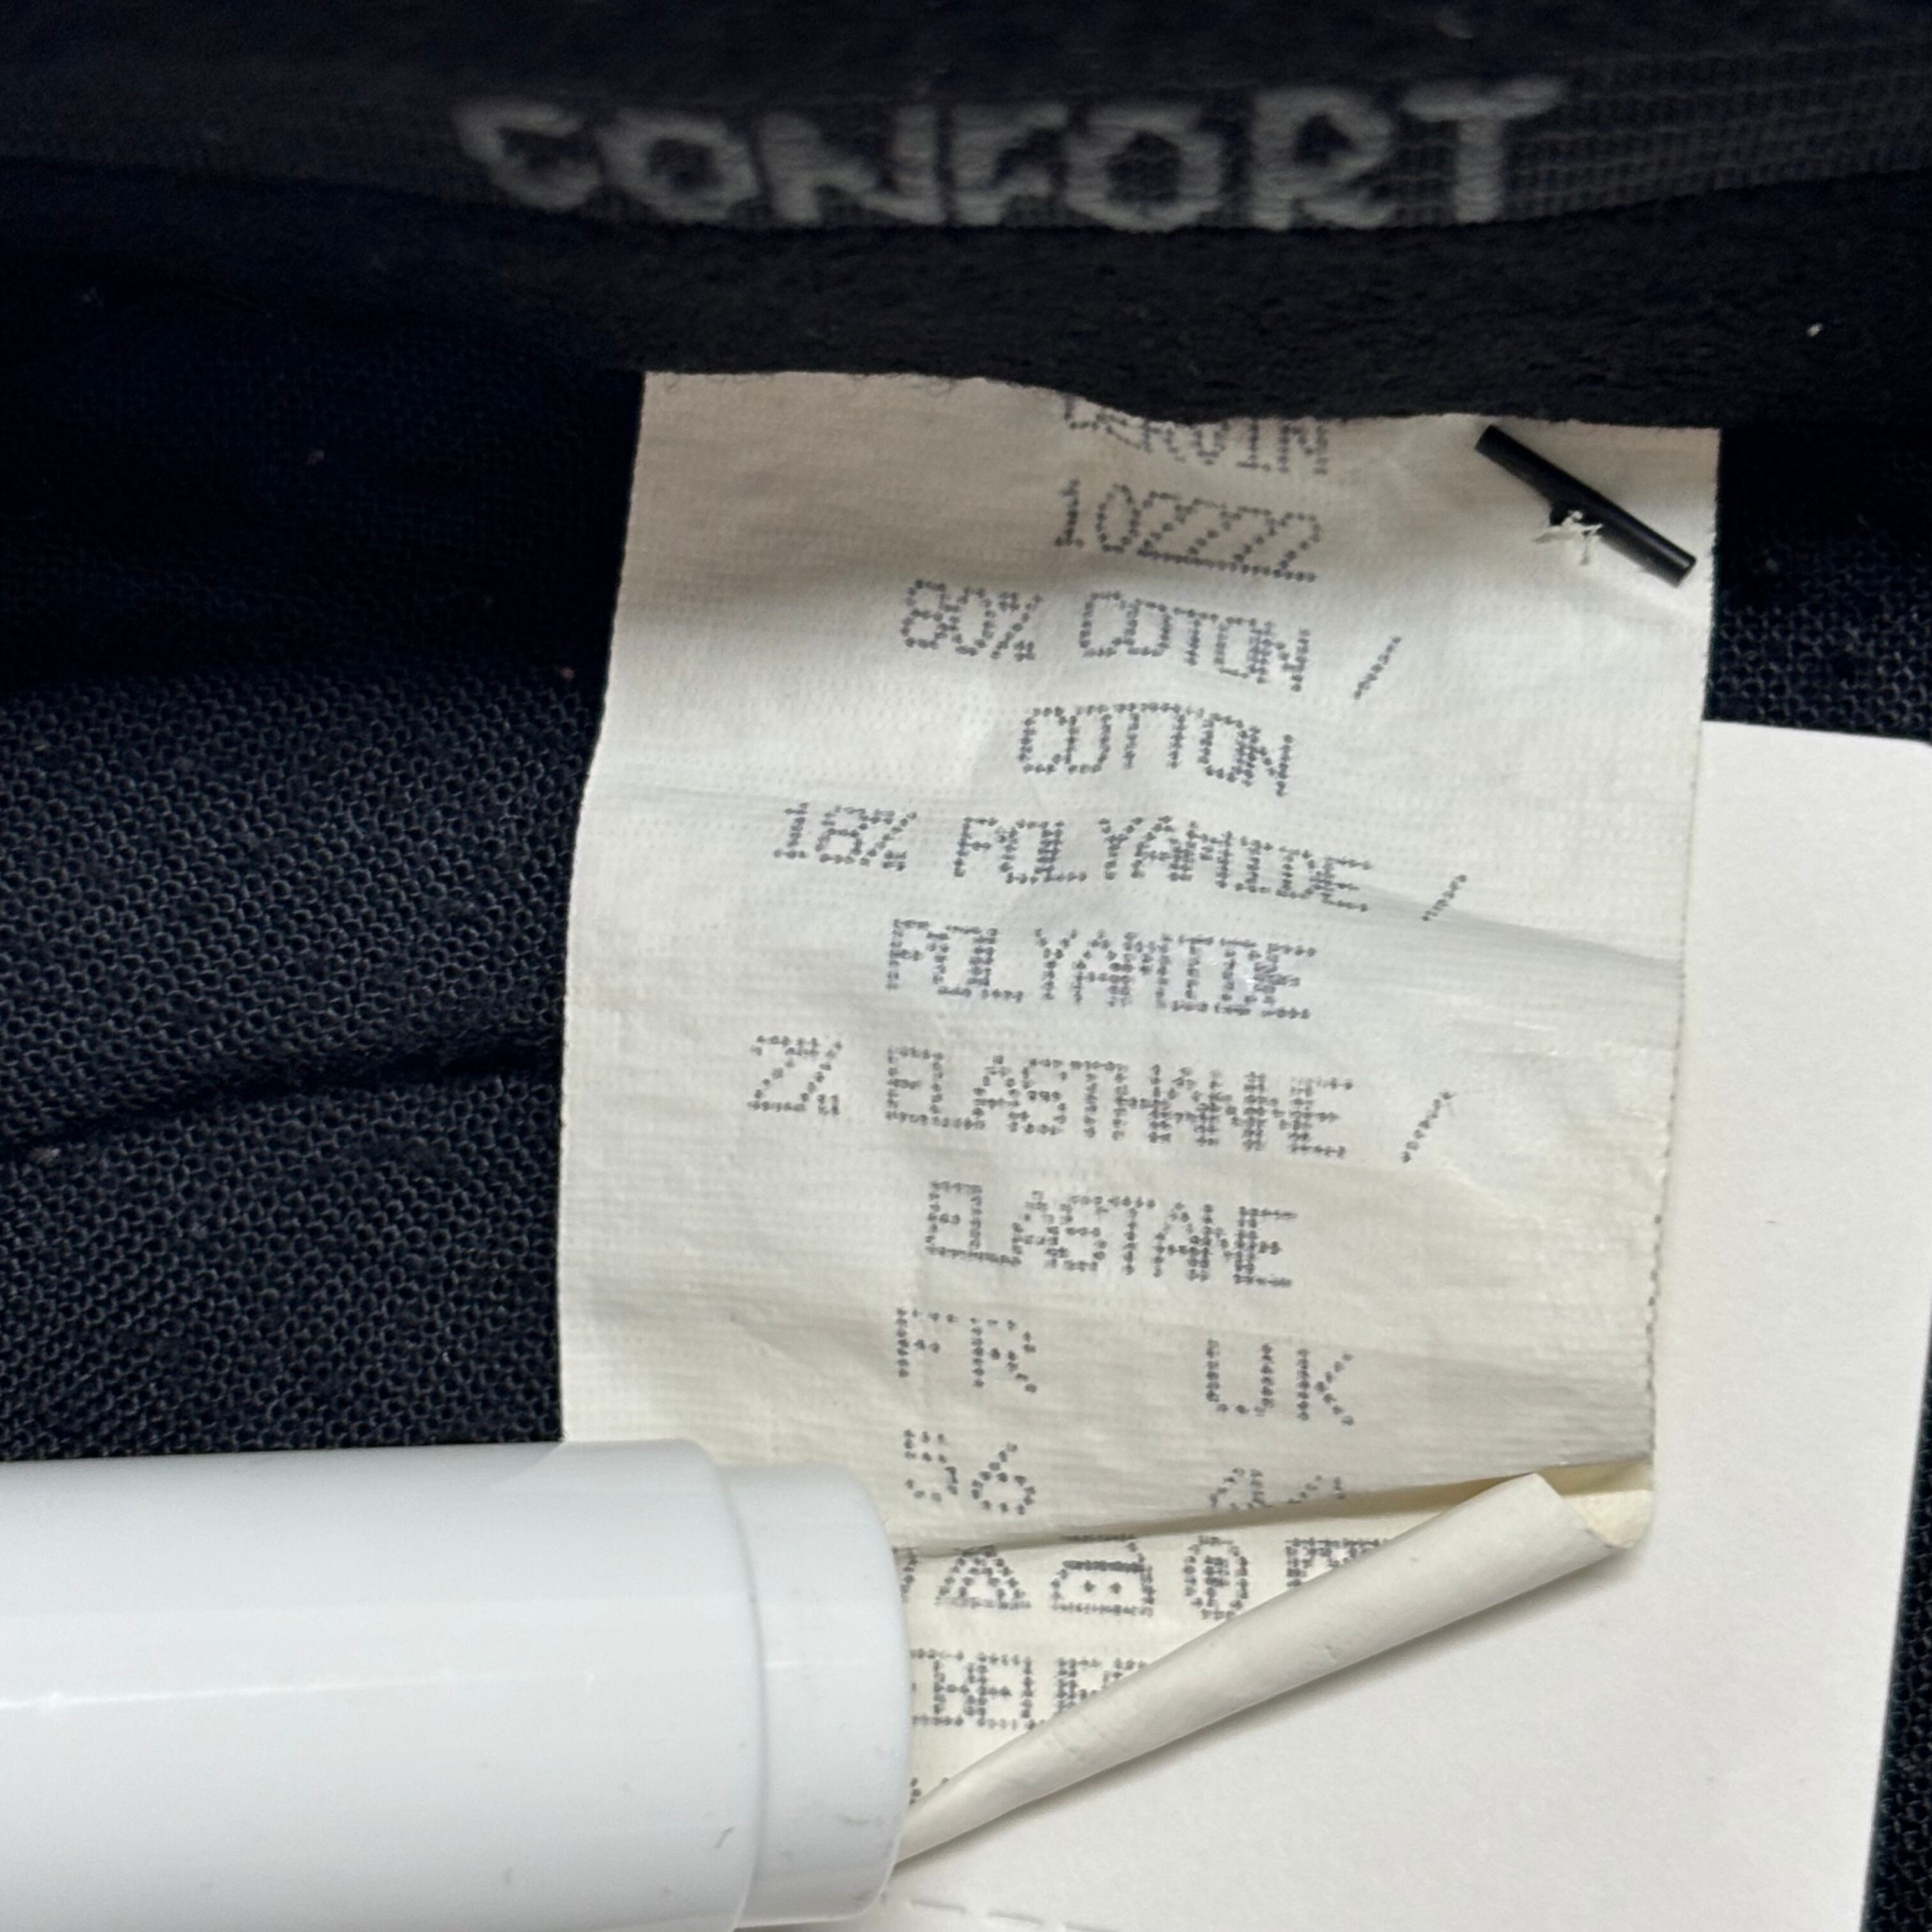 CONFORT
102222
80% COTON /
COTTON
18% POLYAMIDE /
POLYAMIDE
2% ELASTHANNE /
ELASTANE
FR UK
56